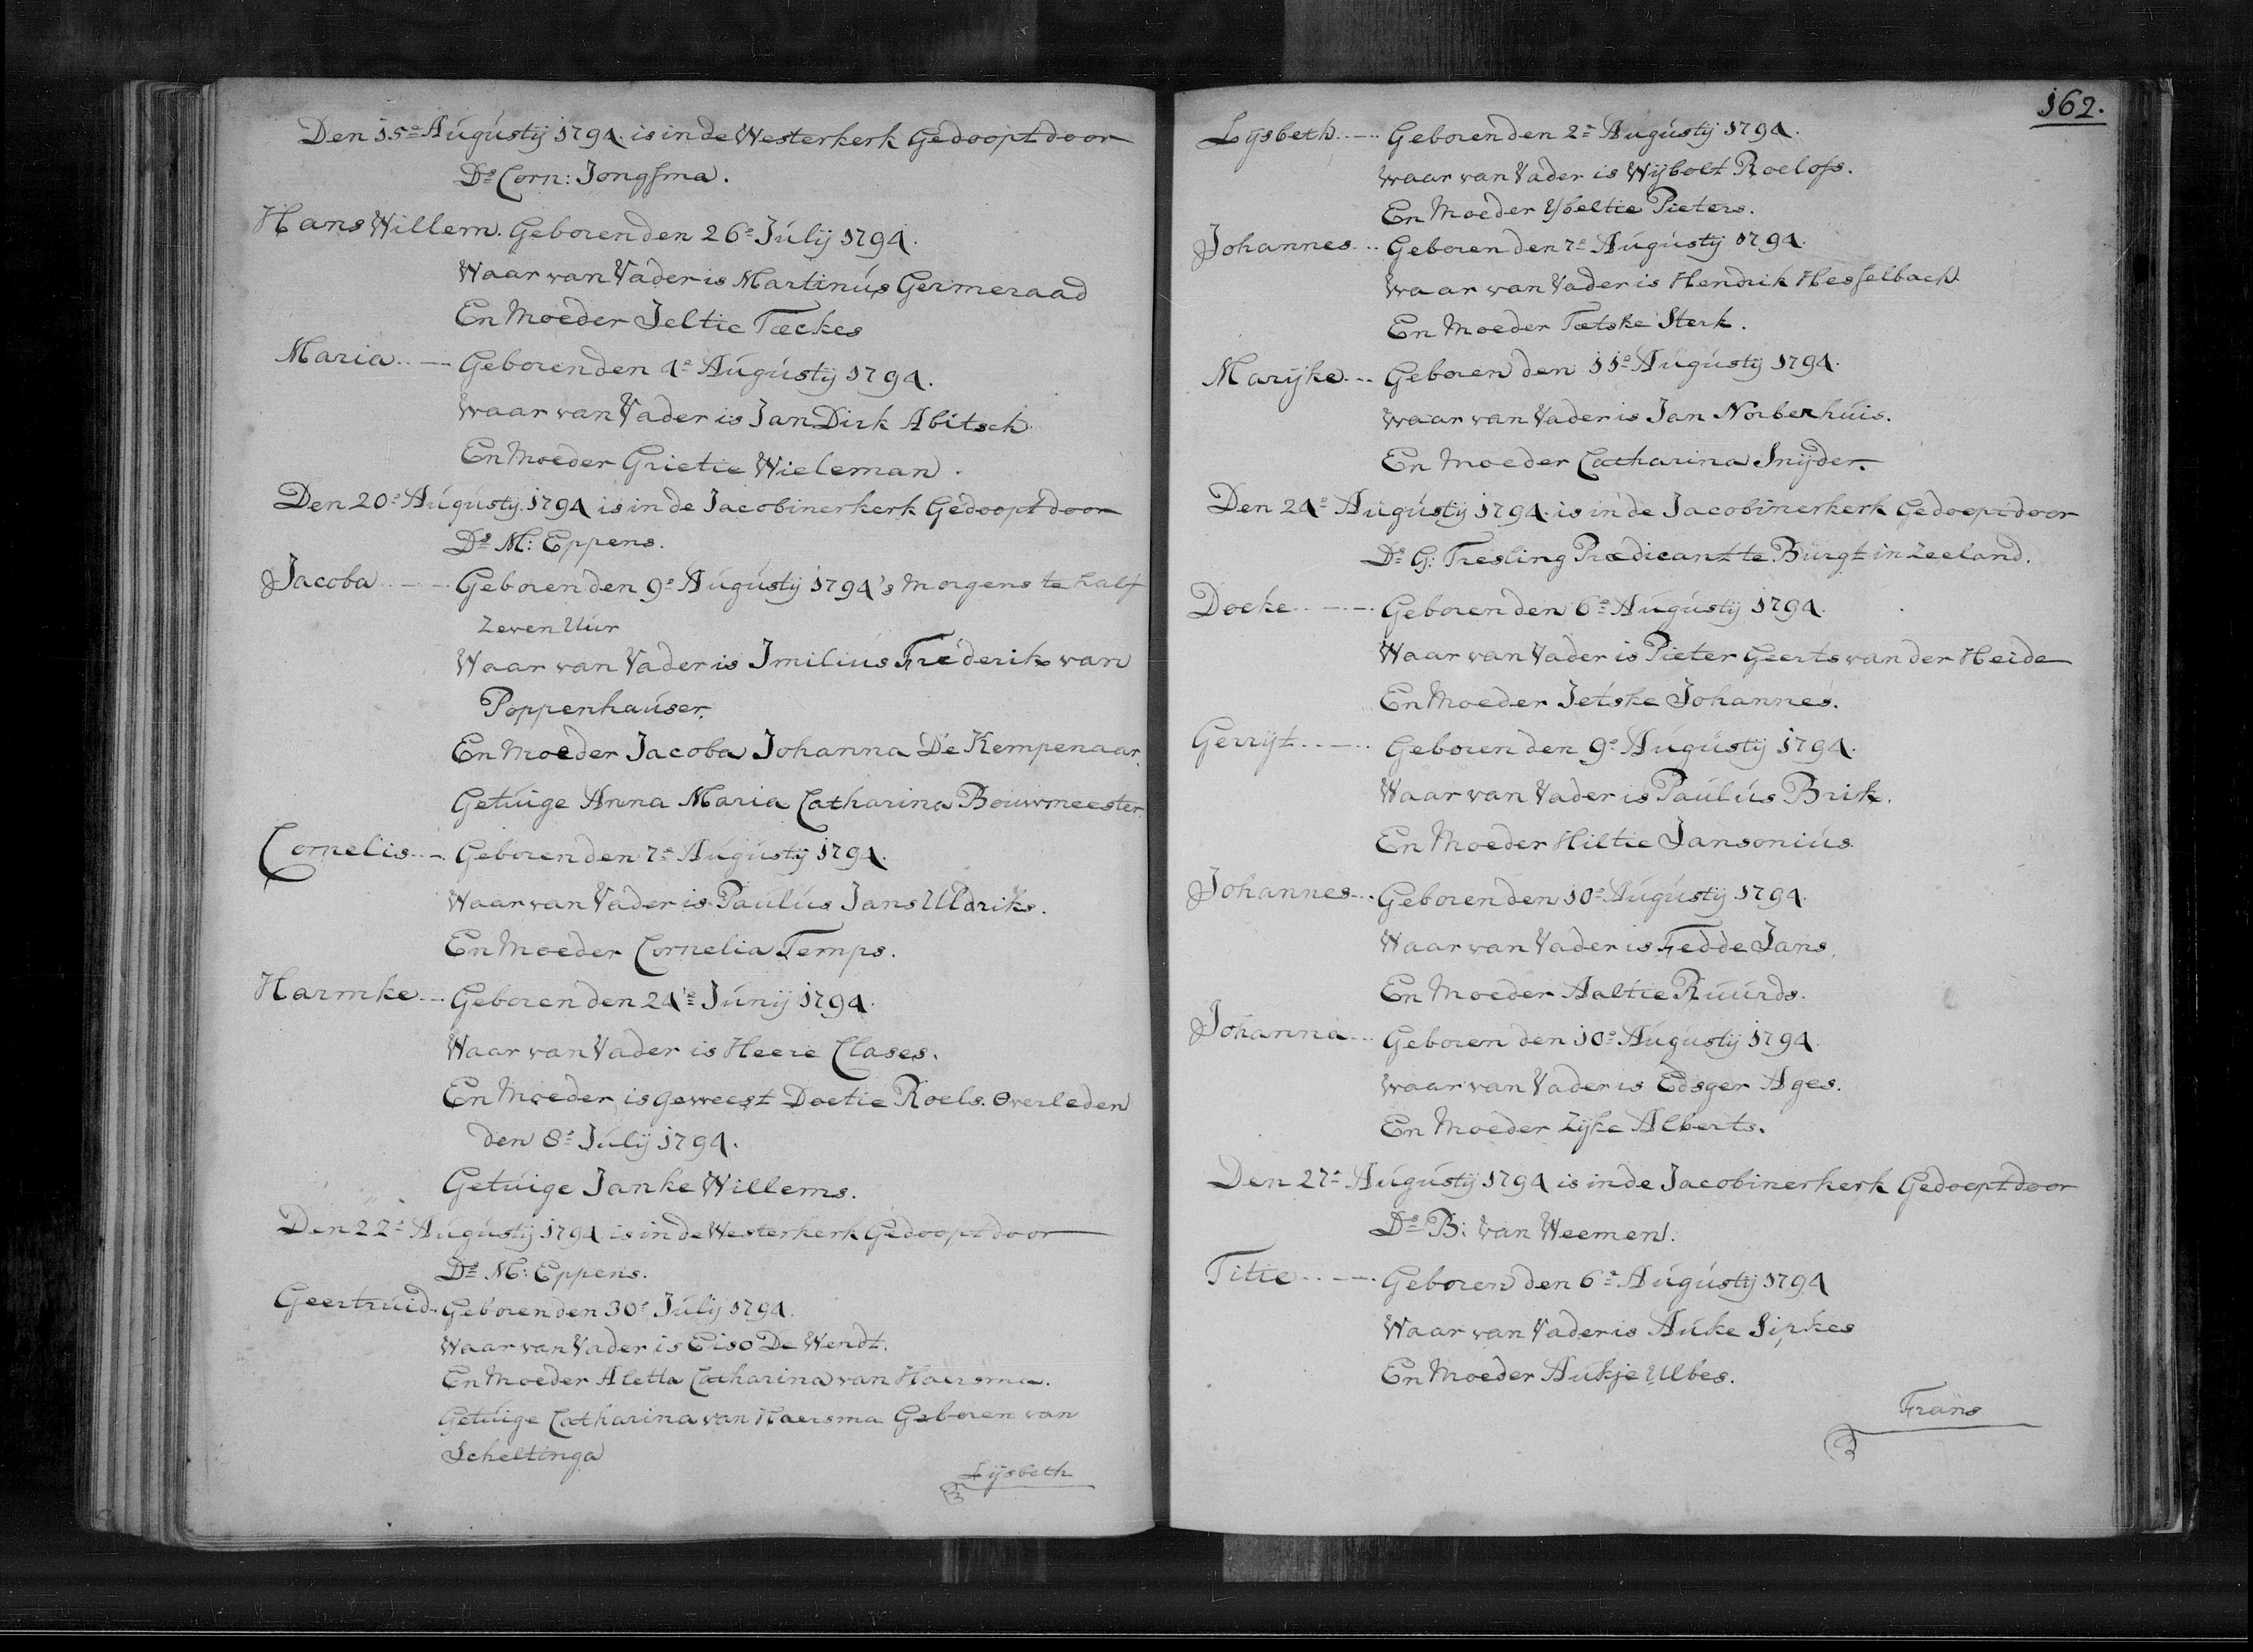 Den 15e Augústij 1794. is in de Westerkerk Gedoopt door
Ds Corn: Jongsma.
Hans Willem. Geboren den 26e Júlij 1794.
Waar van Vader is Martinús Germeraad
En Moeder Jeltie Tæckes
Maria..— Geboren den 4e Augústij 1794.
Waar van Vader is Jan Dirk Abitsch
En Moeder Grietie Wieleman.
Den 20e Augústij 1794 is in de Jacobinerkerk Gedoopt door
Ds M: Eppens.
Jacoba..— Geboren den 9e Augústij 1794 's Morgens te half
Zeven Uúr
Waar van Vader is Jmiliús Frederik van
Poppenhaúser.
En Moeder Jacoba Johanna De Kempenaar.
Getúige Anna Maria Catharina Boúwmeester.
Cornelis..— Geboren den 7e Augústij 1794.
Waar van Vader is Paulús Jans Uldriks.
En Moeder Cornelia Temps.
Harmke..— Geboren den 24e Júnij 1794.
Waar van Vader is Heere Clases.
En Moeder is geweest Doetie Roels. Overleden
den 8e Júlij 1794.
Getúige Janke Willems.
Den 22e Augústij 1794 is in de Westerkerk Gedoopt door
Ds M: Eppens.
Geertruid. Geboren den 30e Júlij 1794.
Waar van Vader is Eiso De Wendt.
En Moeder Aletta Catharina van Haersma.
Getúige Catharina van Haersma Geboren van
Scheltinga
Lijsbeth
162.
Lijsbeth..— Geboren den 2e Augústij 1794.
waar van Vader is Wijbolt Roelofs.
En Moeder Ybeltie Pieters.
Johannes... Geboren den 7e Augústij 1794.
waar van Vader is Hendrik Hesselbach.
En Moeder Tætske Sterk.
Marijke... Geboren den 11e Augústij 1794.
waar van Vader is Jan Norberhúis.
En Moeder Catharina Snijder.
Den 24e Augústij 1794. is in de Jacobinerkerk Gedoopt door
Ds G: Tresling Prædicant te Búrgt in Zeeland.
Doeke..— Geboren den 6e Augústij 1794.
Waar van Vader is Pieter Geerts van der Heide
En Moeder Jetske Johannes.
Gerrijt..— Geboren den 9e Augústij 1794.
Waar van Vader is Paulús Brik.
En Moeder Hiltie Jansoniús.
Johannes... Geboren den 10e Augústij 1794.
Waar van Vader is Fedde Jans.
En Moeder Aaltie Ruúrds.
Johanna... Geboren den 10e Augústij 1794.
waar van Vader is Edsger Ages.
En Moeder Zijke Alberts.
Den 27e Augústij 1794 is in de Jacobinerkerk Gedoopt door
Ds B: van Weemen.
Titie..— Geboren den 6e Augústij 1794
Waar van Vader is Auke Sipkes
En Moeder Aukje Ulbes.
Frans